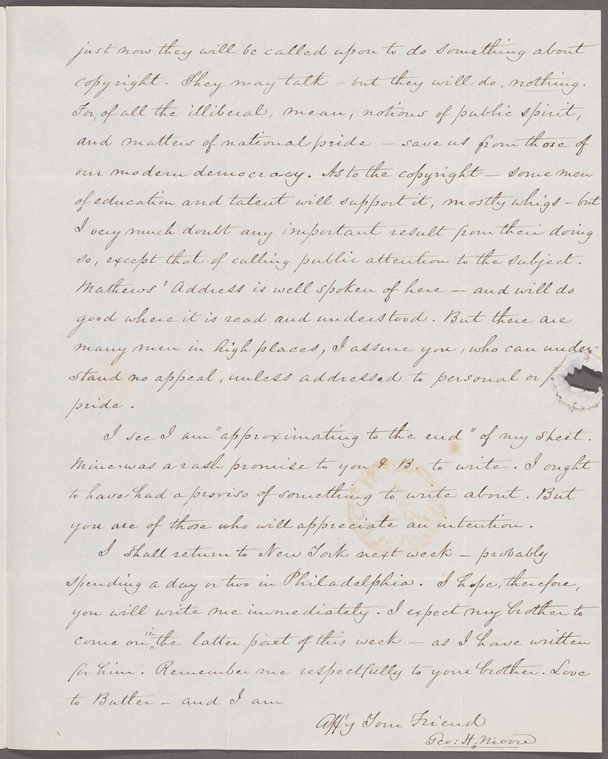 just now they will be called upon to do something about
copyright. They may talk – but they will do, nothing.
For, of all the illiberal, mean, notions of public spirit,
and matters of national pride – save us from those of
our modern democracy. As to the copyright – some men
of education and talent will support it, mostly whigs – but
I very much doubt any important result from their doing
so, except that of calling public attention to the subject.
Mathews' Address is well spoken of here – and will do
good where it is read and understood. But there are
many men in high places, I assure you, who can under-
stand no appeal, unless addressed to personal or
pride.
I see I am "approximating to the end" of my sheet.
Mine was a rash promise to you & B. to write. I ought
to have had a proviso of something to write about. But
you are of those who will appreciate an intention.
I shall return to New York next week – probably
spending a day or two in Philadelphia. I hope, therefore,
you will write me immediately. I expect my brother to
come on in the latter part of this week – as I have written
for him. Remember me respectfully to your brother. Love
to Butler – and I am
Aff'y Your Friend
Geo: H. Moore